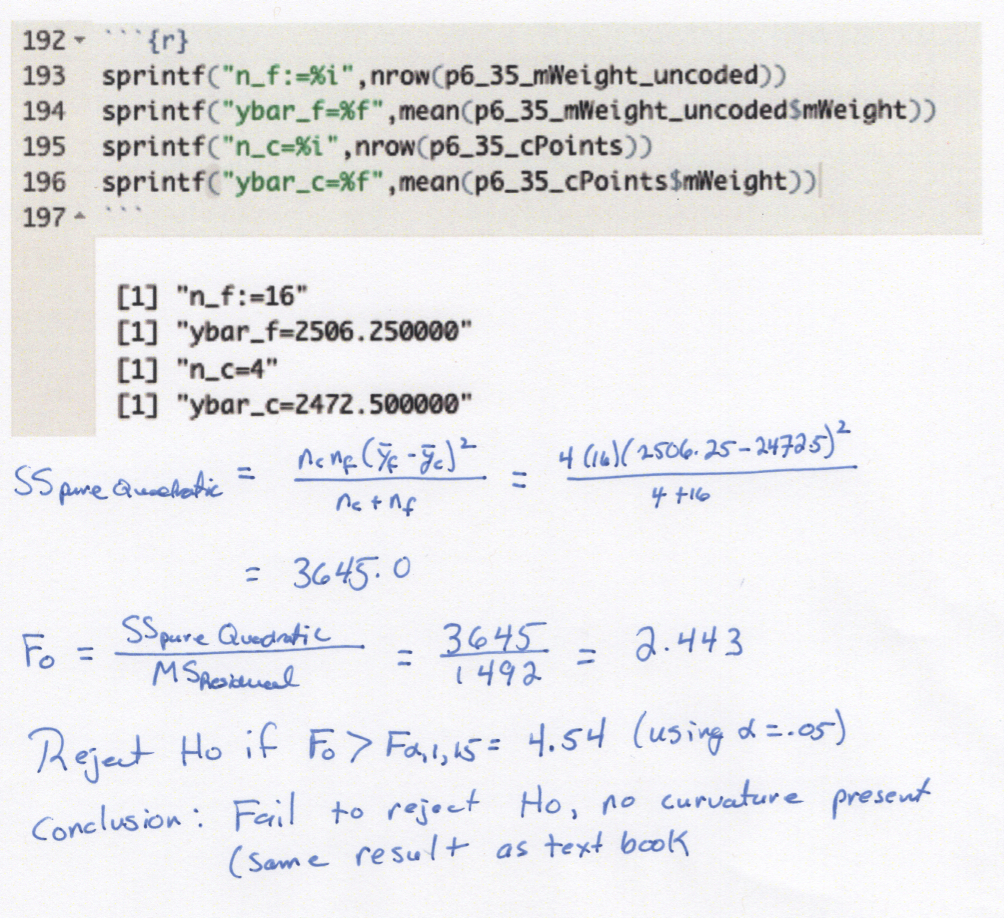 192 ```{r}
193 sprintf("n_f:=%i",nrow(p6_35_mWeight_uncoded))
194 sprintf("ybar_f=%f",mean(p6_35_mWeight_uncoded$mWeight))
195 sprintf("n_c=%i",nrow(p6_35_cPoints))
196 sprintf("ybar_c=%f",mean(p6_35_cPoints$mWeight))
197 ```
[1] "n_f:=16"
[1] "ybar_f=2506.250000"
[1] "n_c=4"
[1] "ybar_c=2472.500000"
SS pure Quadratic = nc nf (ȳf - ȳc)² / nc + nf = 4 (16)(2506.25-2472.5)² / 4 +16
= 3645.0
Fo = SS pure Quadratic / MS Residual = 3645 / 1492 = 2.443
Reject Ho if Fo > Fα,1,15 = 4.54 (using α=.05)
Conclusion: Fail to reject Ho, no curvature present
(same result as text book